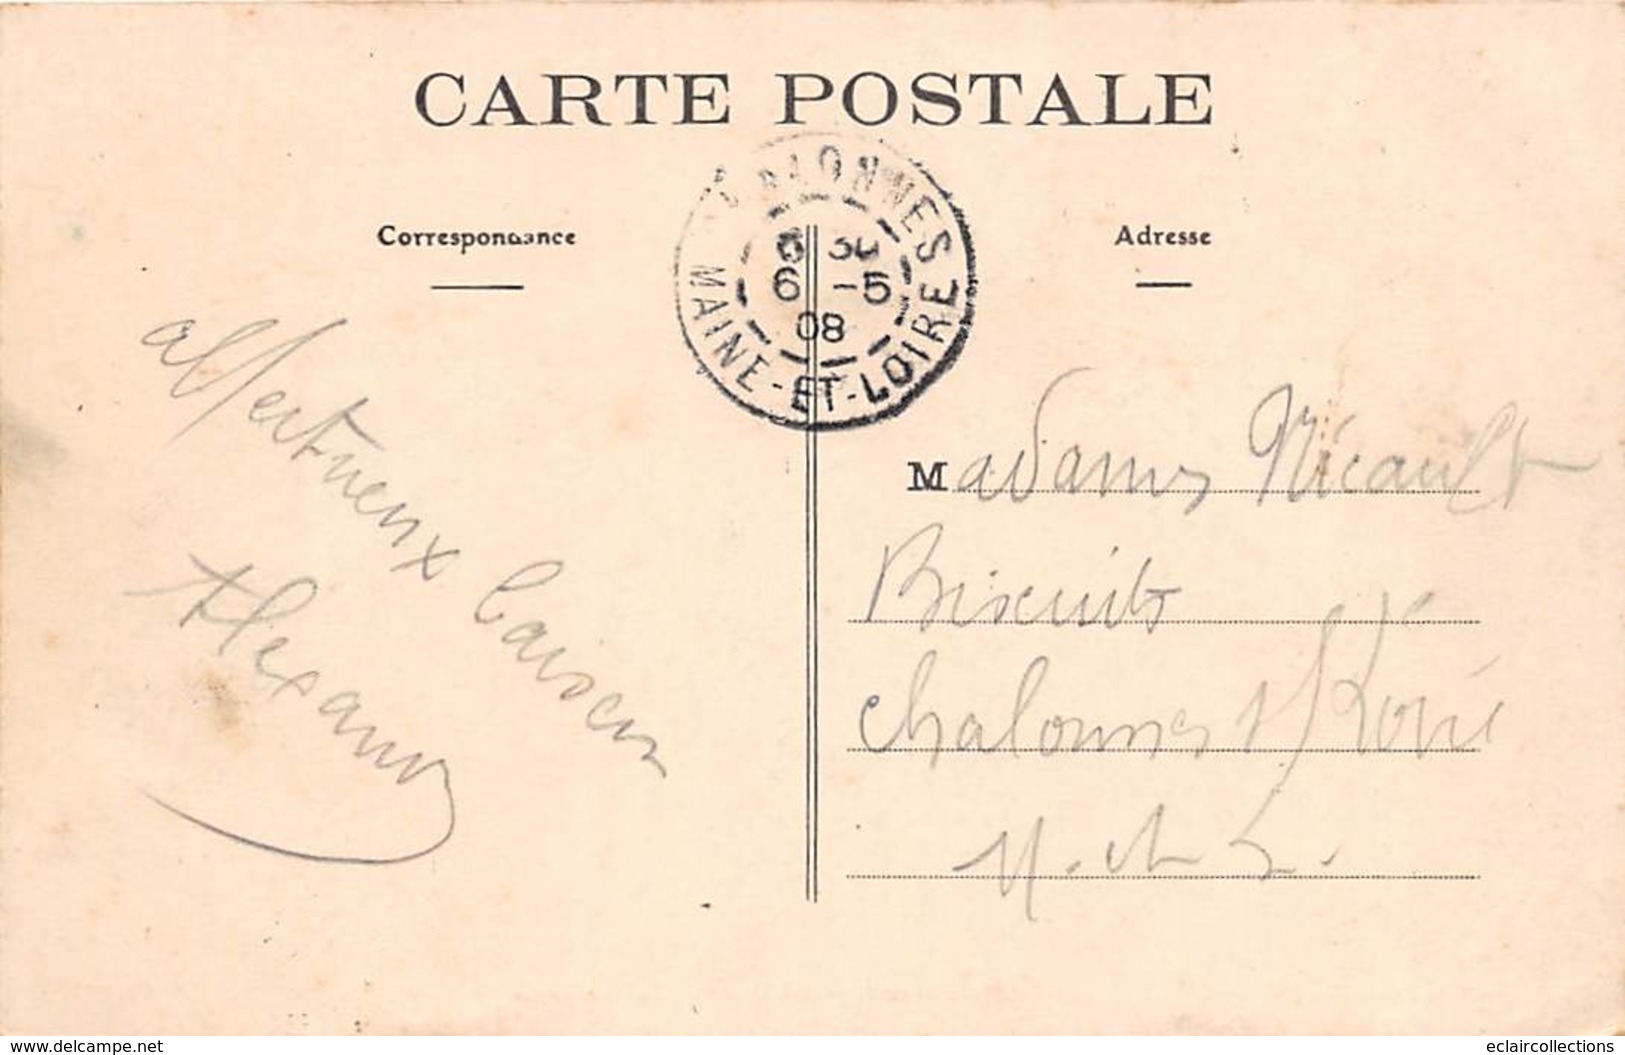 CARTE POSTALE
CHALONNES
MAINE-ET-LOIRE
6 -5
08
Correspondance
Adresse
affectueux baisers
Alexandre
Madame Nicault
Biscuits
Chalonnes s/ Loire
M. et L.
www.delcampe.net
eclaircollections